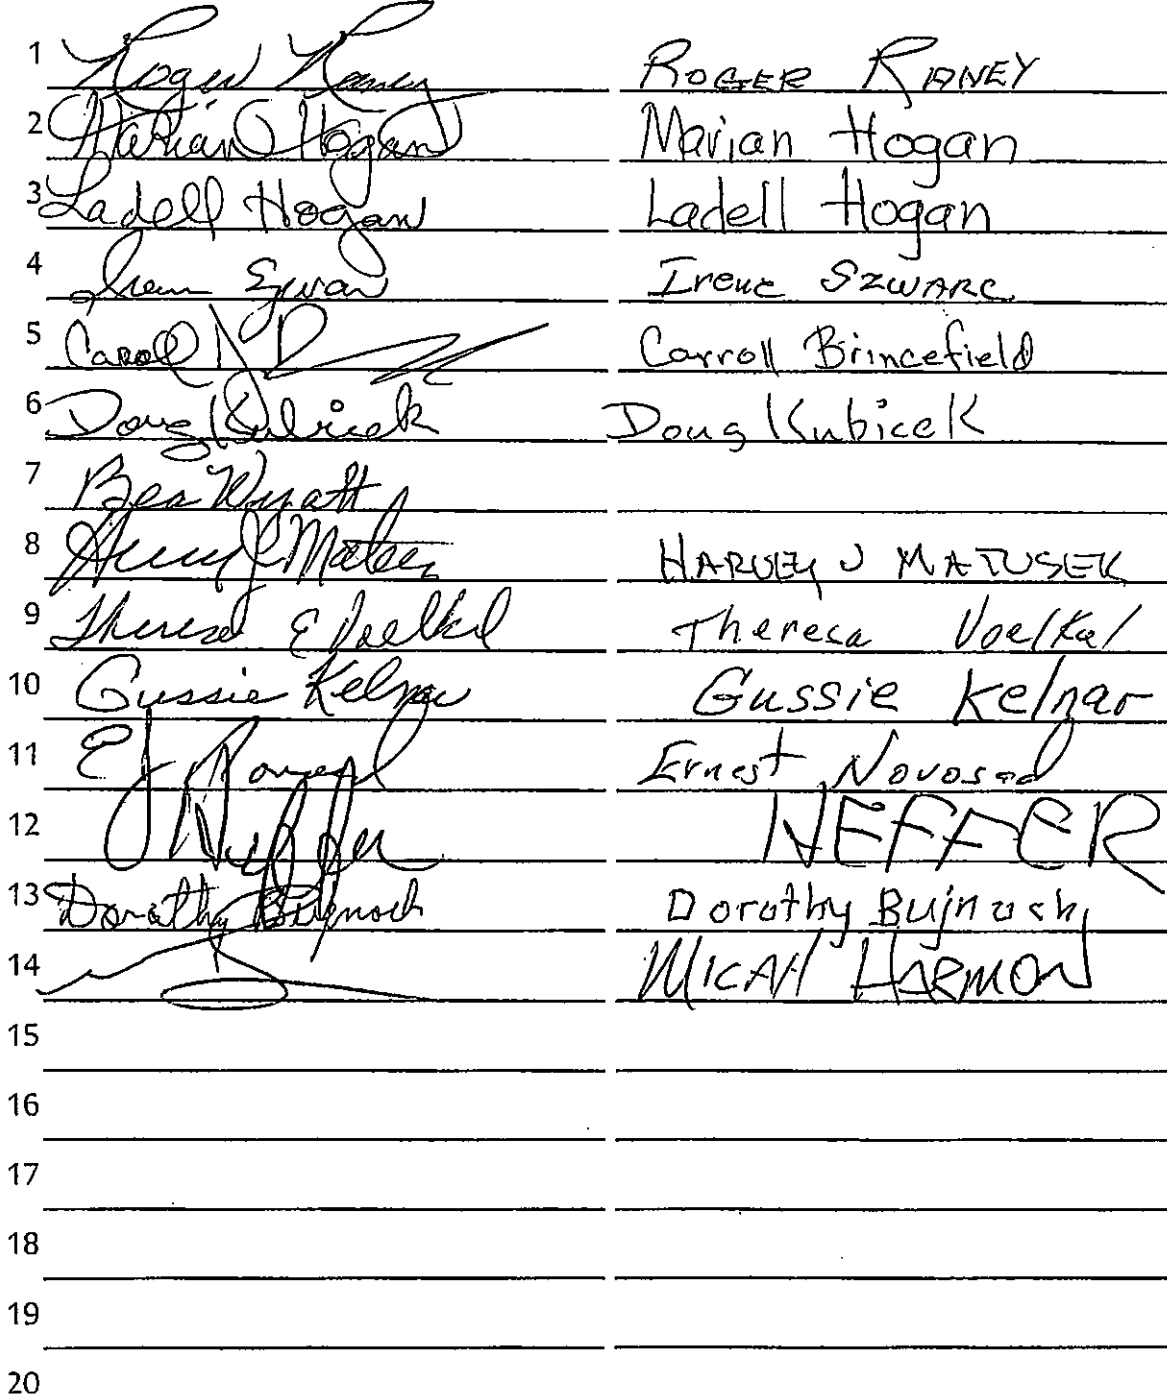 1 Roger Raney ROGER RANEY
2 Marian Hogan Marian Hogan
3 Ladell Hogan Ladell Hogan
4 Irene Szwarc Irene SZWARC
5 Caroll Carroll Brincefield
6 Doug Kubicek Doug Kubicek
7 Bea Wyatt
8 HARVEY J MATUSEK
9 Theresa E Voelkel Theresa Voelkel
10 Gussie Kelnar Gussie Kelnar
11 Ernest Novosad
12 NEFFER
13 Dorothy Bujnoch Dorothy Bujnoch
14 MICAH HARMON
15
16
17
18
19
20